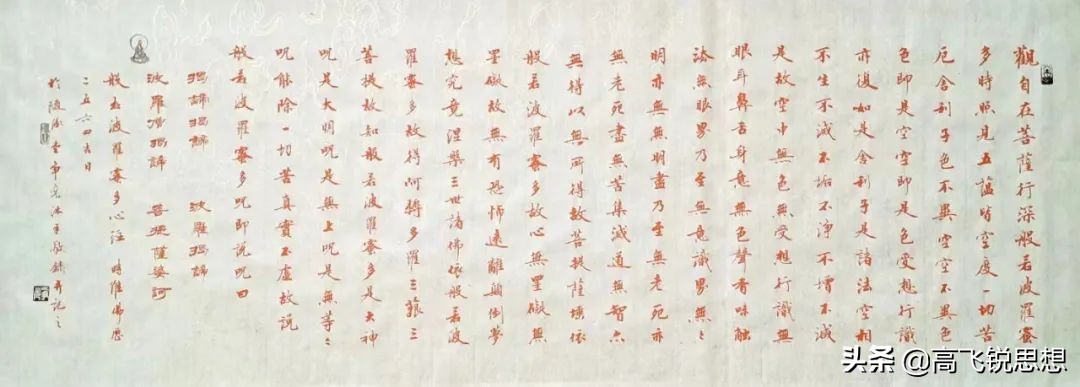 觀自在菩薩行深般若波羅蜜
多時照見五蘊皆空度一切苦
厄舍利子色不異空空不異色
色即是空空即是色受想行識
亦復如是舍利子是諸法空相
不生不滅不垢不淨不增不減
是故空中無色無受想行識無
眼耳鼻舌身意無色聲香味觸
法無眼界乃至無意識界無〻
明亦無無明盡乃至無老死亦
無老死盡無苦集滅道無智亦
無得以無所得故菩提薩埵依
般若波羅蜜多故心無罣礙無
罣礙故無有恐怖遠離顛倒夢
想究竟涅槃三世諸佛依般若波
羅蜜多故得阿耨多羅三藐三
菩提故知般若波羅蜜多是大神
咒是大明咒是無上咒是無等〻
咒能除一切苦真實不虛故說
般若波羅蜜多咒即說咒曰
揭諦揭諦 波羅揭諦
波羅僧揭諦 菩提薩婆訶
般若波羅蜜多心經 時維佛曆
二五六四吉日
於隨 敬錄并記之
头条 @高飞锐思想